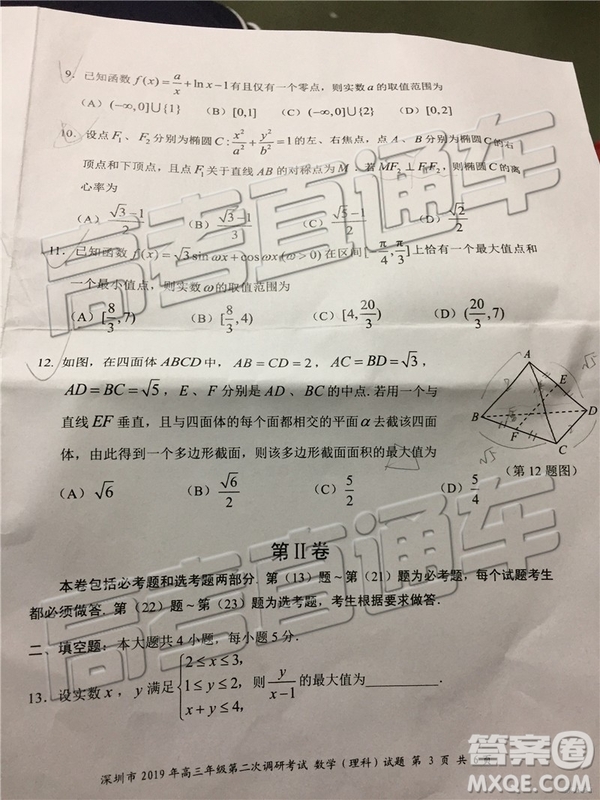 9. 已知函数 f(x) = a/x + ln x − 1 有且仅有一个零点，则实数 a 的取值范围为
(A) (−∞,0]∪{1} (B) [0,1] (C) (−∞,0]∪{2} (D) [0,2]
10. 设点 F₁、F₂ 分别为椭圆 C: x²/a² + y²/b² = 1 的左、右焦点，点 A、B 分别为椭圆 C 的右
顶点和下顶点，且点 F₁ 关于直线 AB 的对称点为 M．若 MF₂ ⊥ F₁F₂，则椭圆 C 的离
心率为
(A) (√3−1)/2 (B) (√3−1)/3 (C) (√5−1)/2 (D) √2/2
11. 已知函数 f(x) = √3 sin ωx + cos ωx (ω > 0) 在区间 [−π/4, π/3] 上恰有一个最大值点和
一个最小值点，则实数 ω 的取值范围为
(A) [8/3, 7) (B) [8/3, 4) (C) [4, 20/3) (D) (20/3, 7)
12. 如图，在四面体 ABCD 中，AB = CD = 2，AC = BD = √3，
AD = BC = √5，E、F 分别是 AD、BC 的中点．若用一个与
直线 EF 垂直，且与四面体的每个面都相交的平面 α 去截该四面
体，由此得到一个多边形截面，则该多边形截面面积的最大值为
A
E
B
D
F
C
√5
(第12题图)
(A) √6 (B) √6/2 (C) 5/2 (D) 5/4
第 II 卷
本卷包括必考题和选考题两部分．第（13）题～第（21）题为必考题，每个试题考生
都必须做答．第（22）题～第（23）题为选考题，考生根据要求做答．
二、填空题：本大题共 4 小题，每小题 5 分．
13. 设实数 x，y 满足 { 2 ≤ x ≤ 3, 1 ≤ y ≤ 2, x + y ≤ 4, 则 y/(x−1) 的最大值为________．
深圳市 2019 年高三年级第二次调研考试 数学（理科）试题 第 3 页 共
高考直通车
高考直通车
高考直通车
答案圈
MXQE.COM